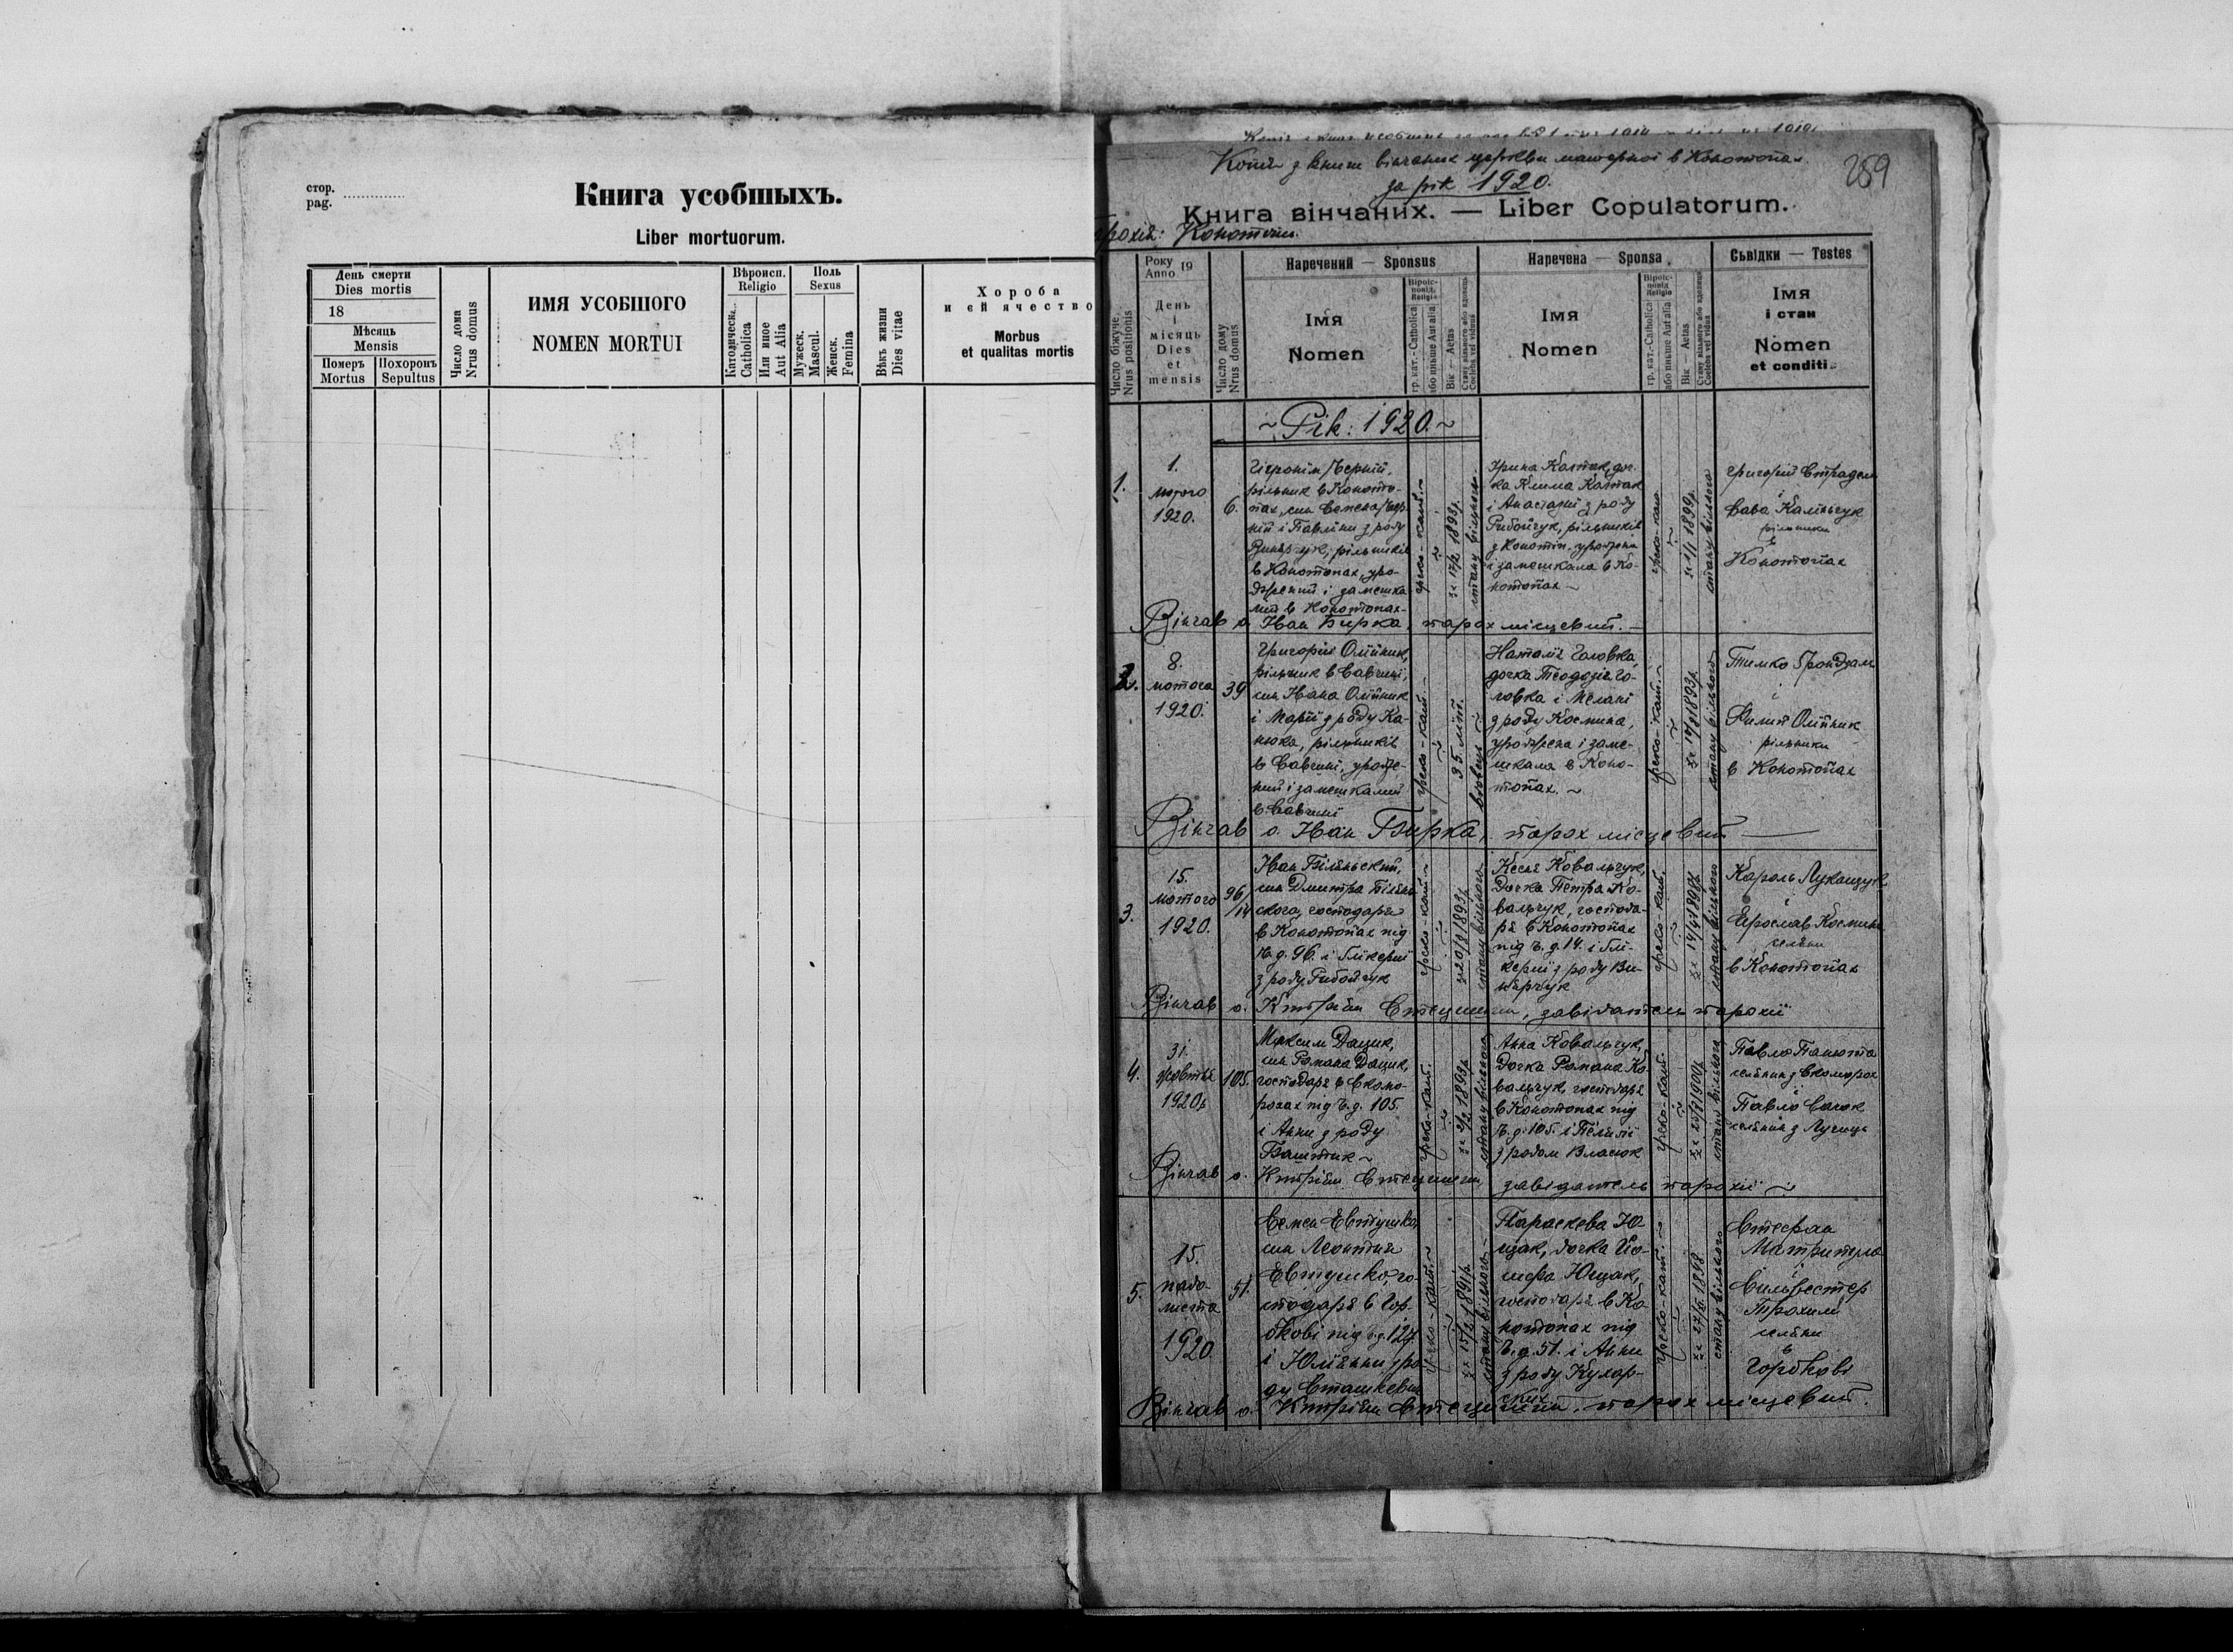 стор.
pag.
Книга усобшыхъ.
Liber mortuorum.
День смерти
Dies mortis
18
Мѣсяць
Mensis
Померъ
Mortus
Похоронъ
Sepultus
Число дома
Nrus domus
ИМЯ УСОБШОГО
NOMEN MORTUI
Вѣроисп.
Religio
Католическ.
Catholica
Или иное
Aut Alia
Поль
Sexus
Мужеск.
Mascul.
Женск.
Femina
Вѣкъ жизни
Dies vitae
Хороба
и еѣ ячество
Morbus
et qualitas mortis
Копія з книги вінчаних церкви матерної в Конотопах
за рік 1920.
259
Книга вінчаних. — Liber Copulatorum.
Конотопи.
Число біжуче
Nrus positionis
Року
Anno 19
День
і
місяць
Dies
et
mensis
Число дому
Nrus domus
Наречений — Sponsus
Імя
Nomen
Віроісповід.
Religio
гр. кат.-Catholica
або иньше Aut alia
Вік — Aetas
Стану вільного або вдовець
Coelebs vel viduus
Наречена — Sponsa
Імя
Nomen
Віроісповід
Religio
гр. кат.-Catholica
або иньше Aut alia
Вік — Aetas
Стану вільного або вдовиця
Coelebs vel vidua
Сьвідки — Testes
Імя
і стан
Nomen
et conditi
~ Рік: 1920. ~
1.
1.
лютого
1920.
6.
рільник в Конотопах, син Семена
і Павліни з роду
рільників
в Конотопах, уроджений і замешкалий в Конотопах
греко-кат. ~
17/2 1893р.
стану вільного
Ірина Каштак, дочка Клима Каштак
і Анастазиї з роду
Рибойчук, рільників
з Конотіп, уроджена
і замешкала в Конотопах ~
греко-кат.
1/1 1899р.
стану вільного
Григорій
і
Сава Калінчук
рільники
в
Конотопах
Вінчав о. Іван Бирка, парох місцевий. —
2.
8.
лютого
1920.
39
Григорій Олійник,
рільник в Савчині,
син Івана Олійник
і Марії з роду Канюка, рільників
в Савчині, уроджений і замешкалий
в Савчині
греко-кат. ~
35 літ.
вдовець ~
Наталія Головка,
дочка Теодозія Головка і Меланії
з роду Космина,
уроджена і замешкала в Конотопах. ~
греко-кат. ~
1893р.
стану вільного
Тимко
і
Филип Олійник
рільники
в Конотопах
Вінчав о. Іван Бирка, парох місцевий —
3.
15.
лютого
1920.
96/14
Іван Біліньский,
син Дмитра Білінського, господаря
в Конотопах під
ч. д. 96. і Глікерії
з роду Рибойчук
греко-кат. ~
20/8 1893р.
стану вільного
Ксеня Ковальчук,
дочка Петра Ковальчук, господаря в Конотопах
під ч. д. 14. і Глікерії з роду
греко-кат.
14/4 1898р.
стану вільного
Кароль Лукащук
і
Ярослав Космина
селяни
в Конотопах
Вінчав о. Стецишин, завідатель парохії
4.
31.
жовтня
1920р.
105.
Максим Дацик,
син Романа Дацик,
господаря в Скоморохах під ч. д. 105.
і Анни з роду
Баштик ~
греко-кат.
1893р.
стану вільного
Анна Ковальчук,
дочка Романа Ковальчук, господаря
в Конотопах під
ч. д. 105. і Пелягії
з родом Власюк
греко-кат.
25/8 1900р.
стану вільного
Павло Панюта
селянин з Скоморох
і
Павло
селянин з
Вінчав о. Стецишин, завідатель парохії ~
5.
15.
падолиста
1920
51.
Семен Євтушко,
син Леонтия
Євтушко, господаря в Горбкові під ч. д. 127
і Юліянни з роду Сташкевич
греко-кат. ~
15/2 1891р.
стану вільного ~
Параскева Ющак, дочка Йосифа Ющак,
господаря в Конотопах під
ч. д. 51. і Анни
з роду
греко-кат. ~
1898
стану вільного
Стефан
і
Сильвестер
Трохим
селяни
в
Горбкові
Вінчав о. Стецишин, парох місцевий.